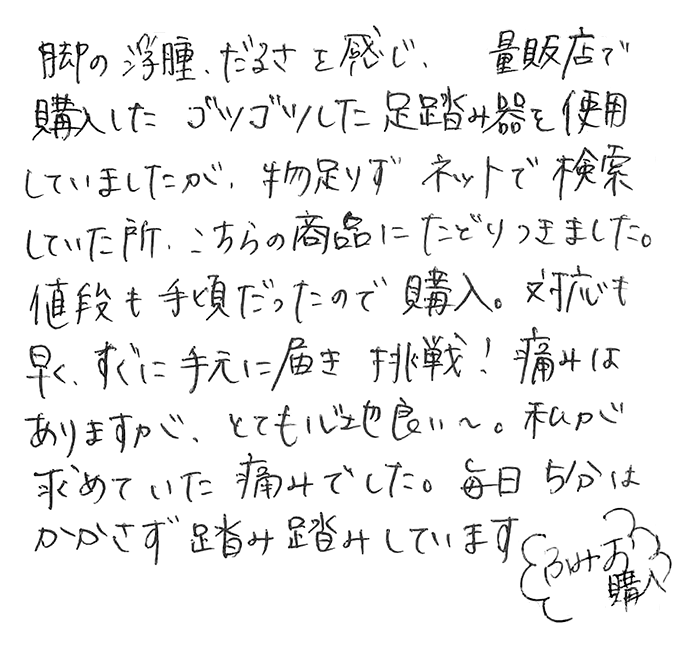 脚の浮腫、だるさを感じ、 量販店で
購入した ゴツゴツした足踏み器を使用
していましたが、物足りず ネットで検索
していた所、こちらの商品にたどりつきました。
値段も手頃だったので購入。対応も
早く、すぐに手元に届き 挑戦！痛みは
ありますが、とても心地良い〜。私が
求めていた痛みでした。毎日 5分は
かかさず踏み踏みしています
ふみお
購入